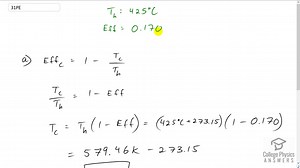 31PE
T_h : 425°C
Eff = 0.170
a) Eff_c = 1 - T_c/T_h
T_c/T_h = 1 - Eff
T_c = T_h (1 - Eff) = (425°C + 273.15)(1 - 0.170)
= 579.46 K - 273.15
College Physics Answers